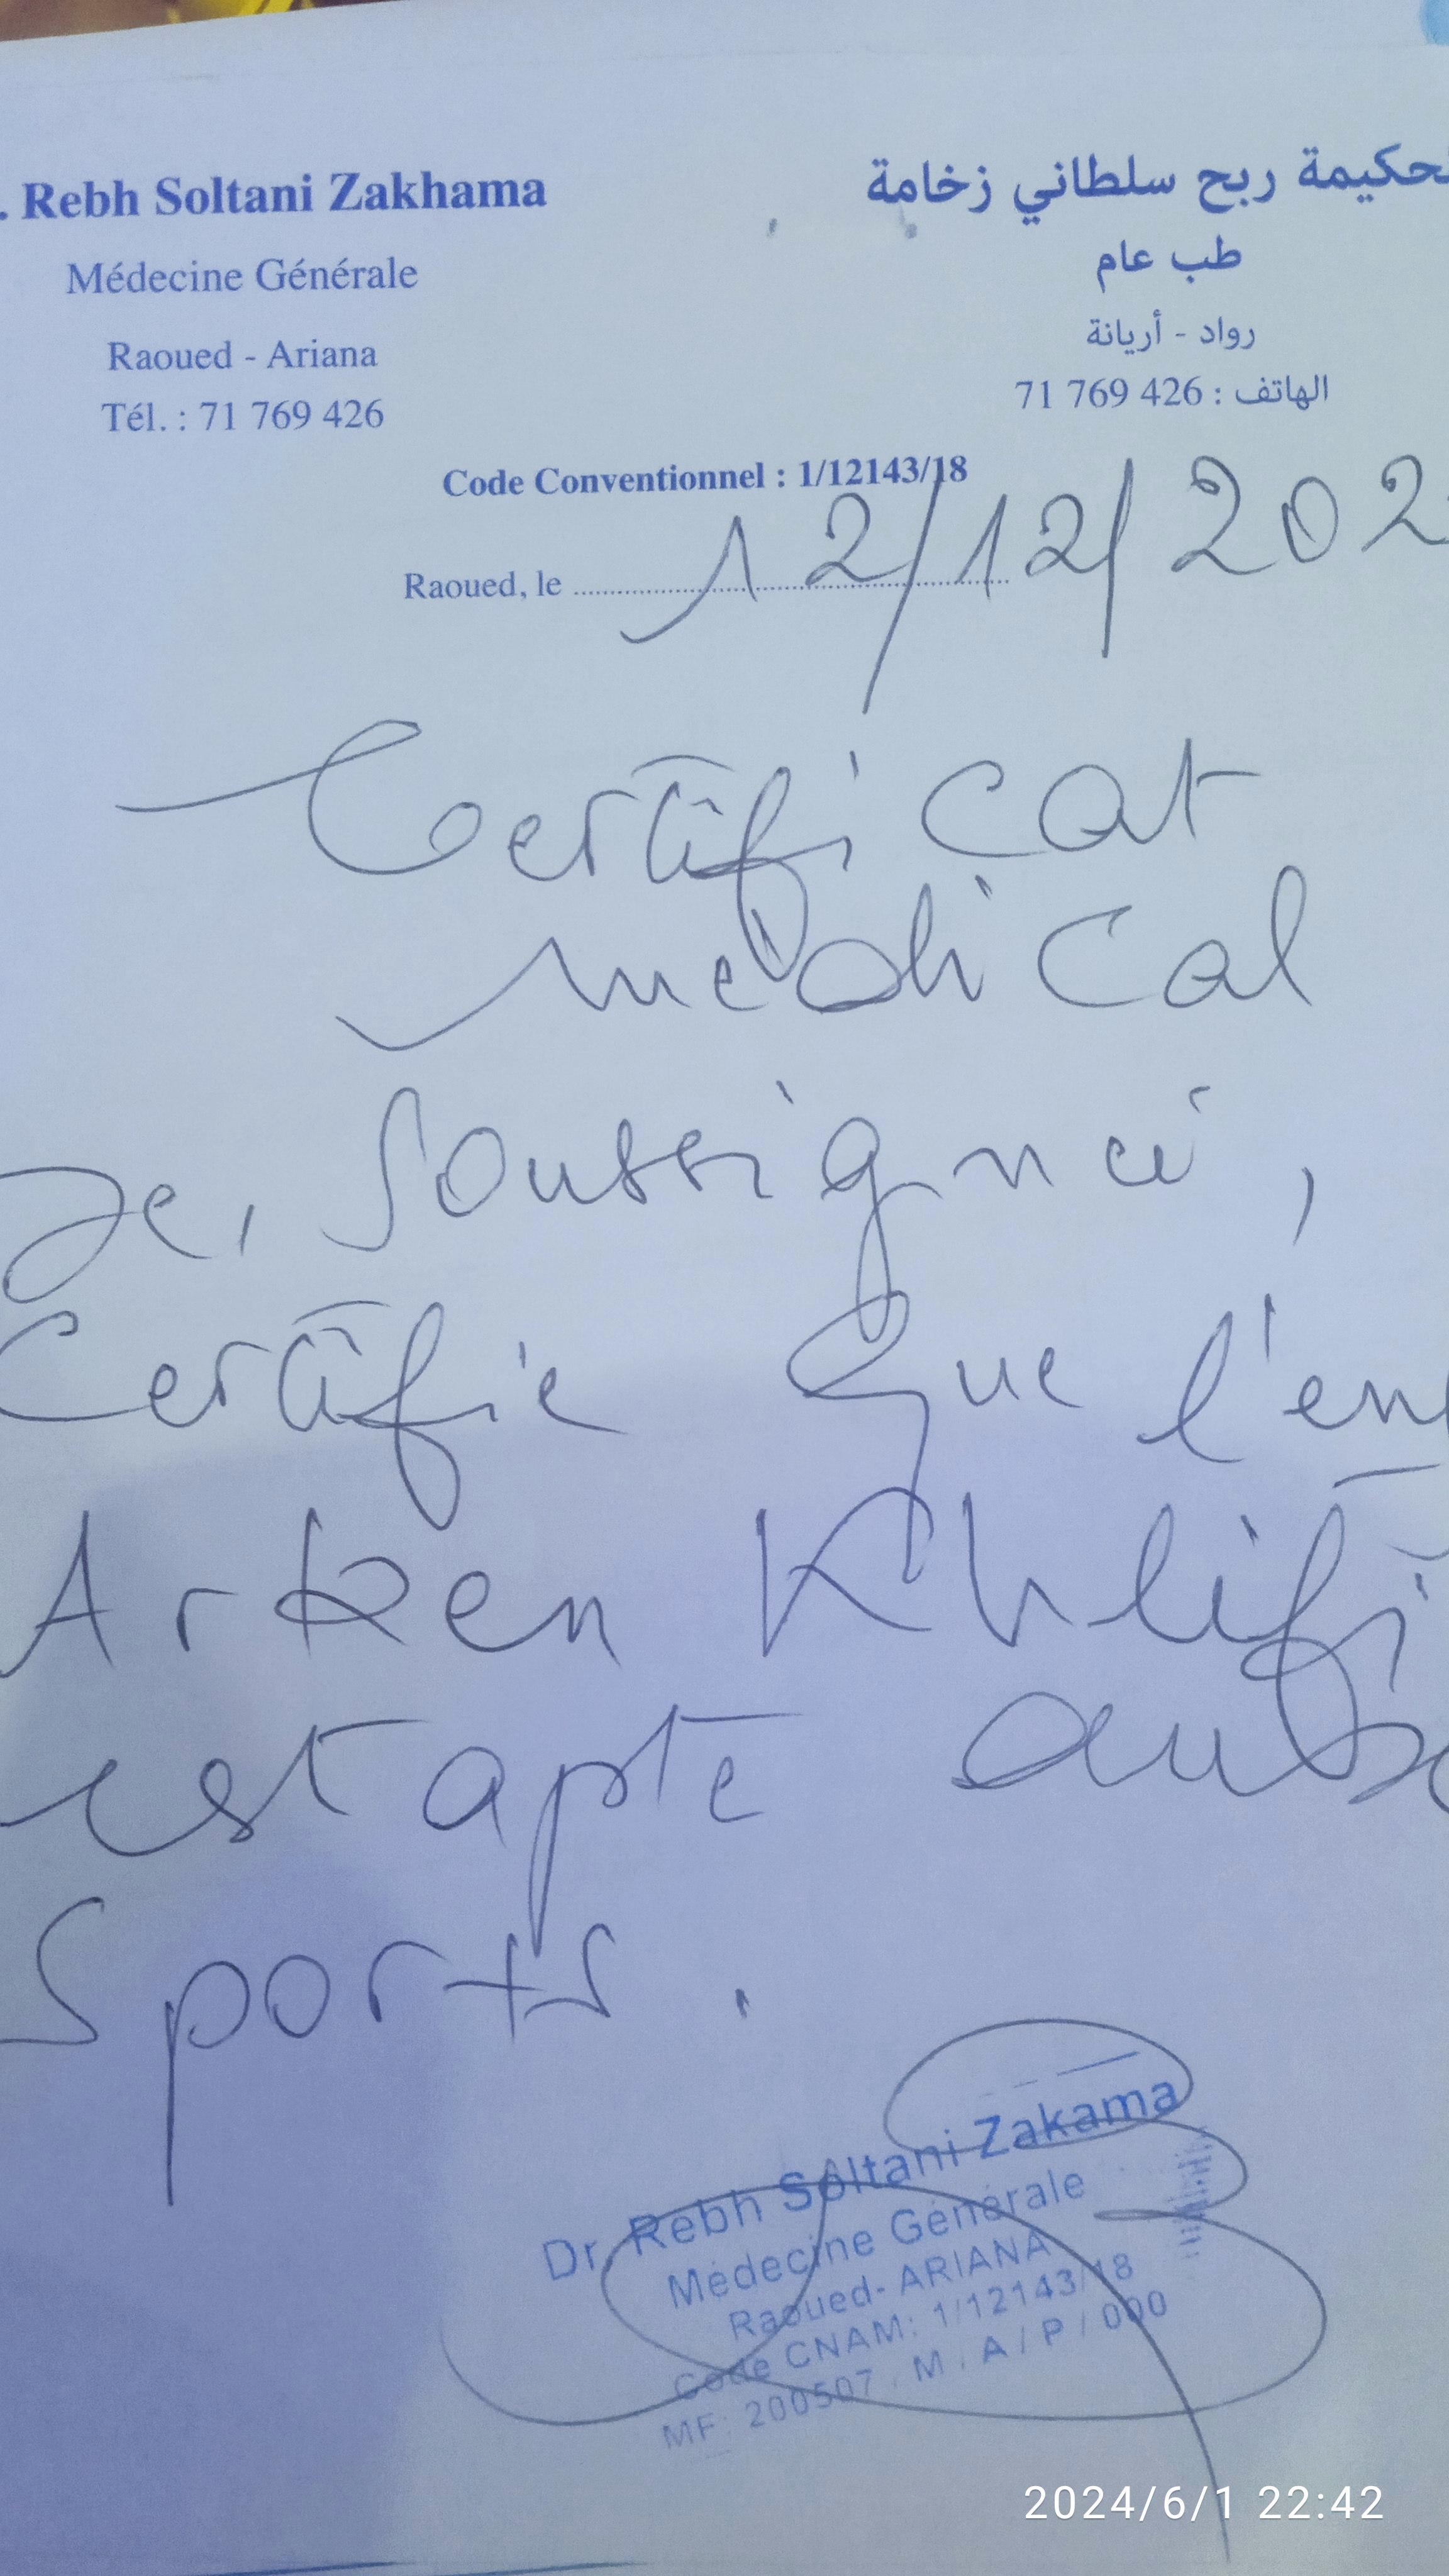 . Rebh Soltani Zakhama
Médecine Générale
Raoued - Ariana
Tél. : 71 769 426
لحكيمة ربح سلطاني زخامة
طب عام
رواد - أريانة
الهاتف : 426 769 71
Code Conventionnel : 1/12143/18
Raoued, le 12/12/202
Certificat
médical
Je, soussigné,
Certifie que l'enf
Arken Khlifi
est apte aux
Sports.
Dr. Rebh Soltani Zakama
Médecine Générale
Raoued- ARIANA
Code CNAM: 1/12143/18
MF: 200507 . M . A / P / 000
2024/6/1 22:42